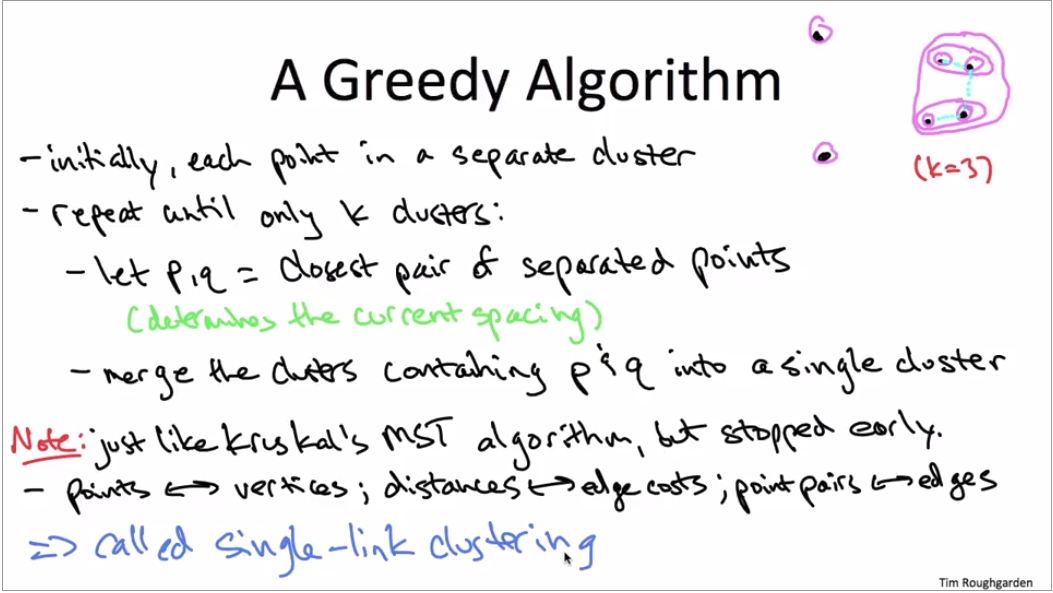 A Greedy Algorithm
- initially, each point in a separate cluster
(k=3)
- repeat until only k clusters:
- let p,q = closest pair of separated points
(determines the current spacing)
- merge the clusters containing p & q into a single cluster
Note: just like Kruskal's MST algorithm, but stopped early.
- points ↔ vertices; distances ↔ edge costs; point pairs ↔ edges
=> called single-link clustering
Tim Roughgarden